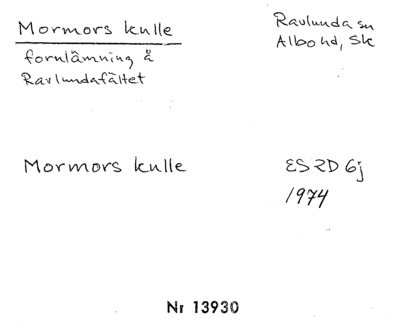 Mormors kulle
Ravlunda sn
Albo hd, Sk
fornlämning å
Ravlundafältet
Mormors kulle
ES 2D 6j
1974
Nr 13930